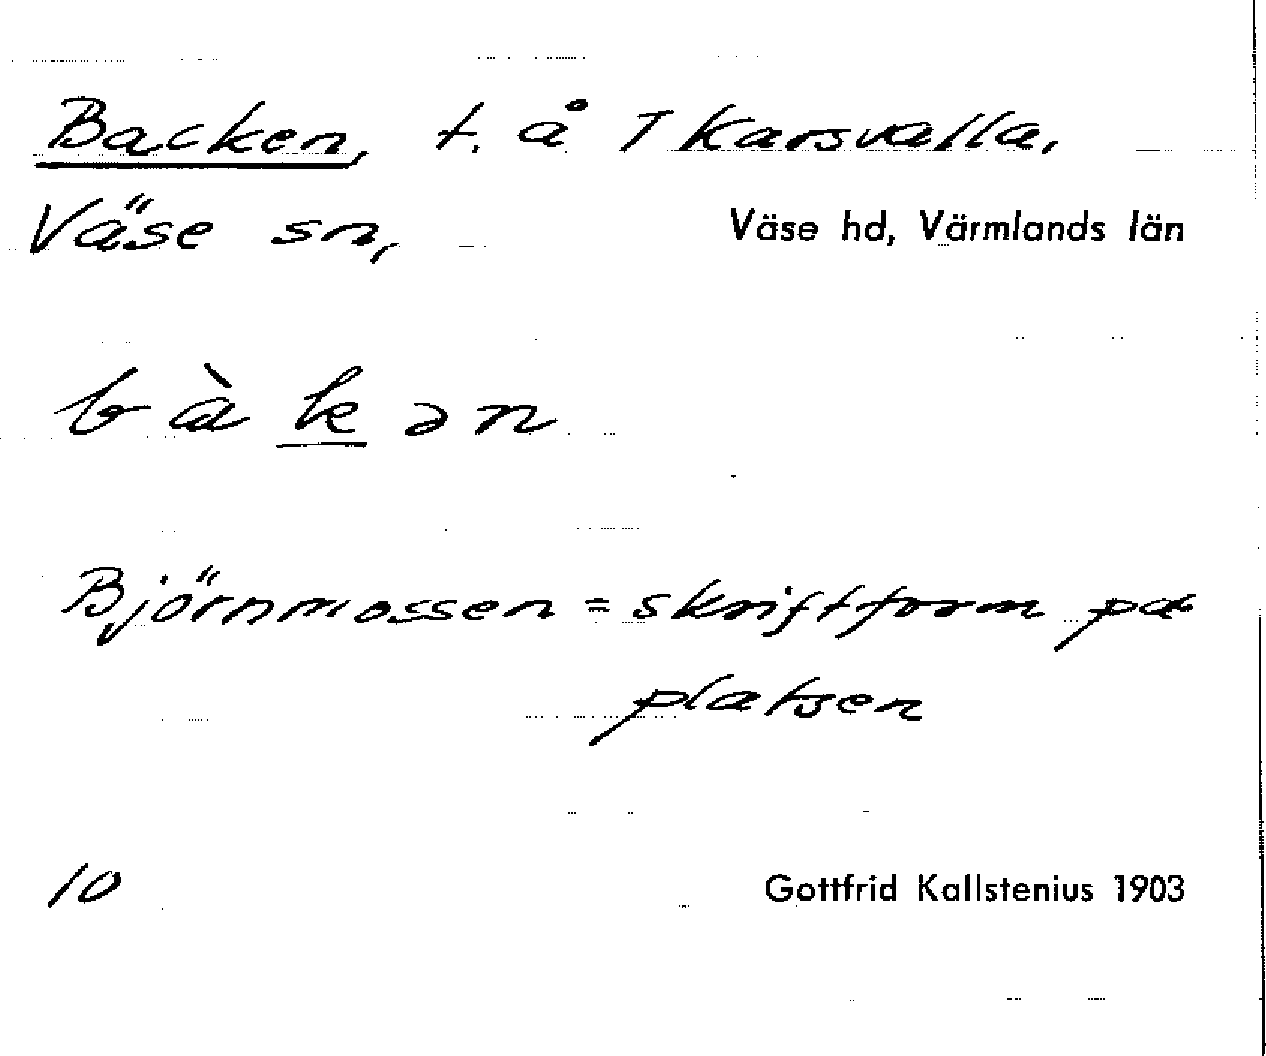 Backen, t. å 1 Karsvalla,
Väse sn, Väse hd, Värmlands län
bàkən
Björnmossen = skriftform på
platsen
10 Gottfrid Kallstenius 1903